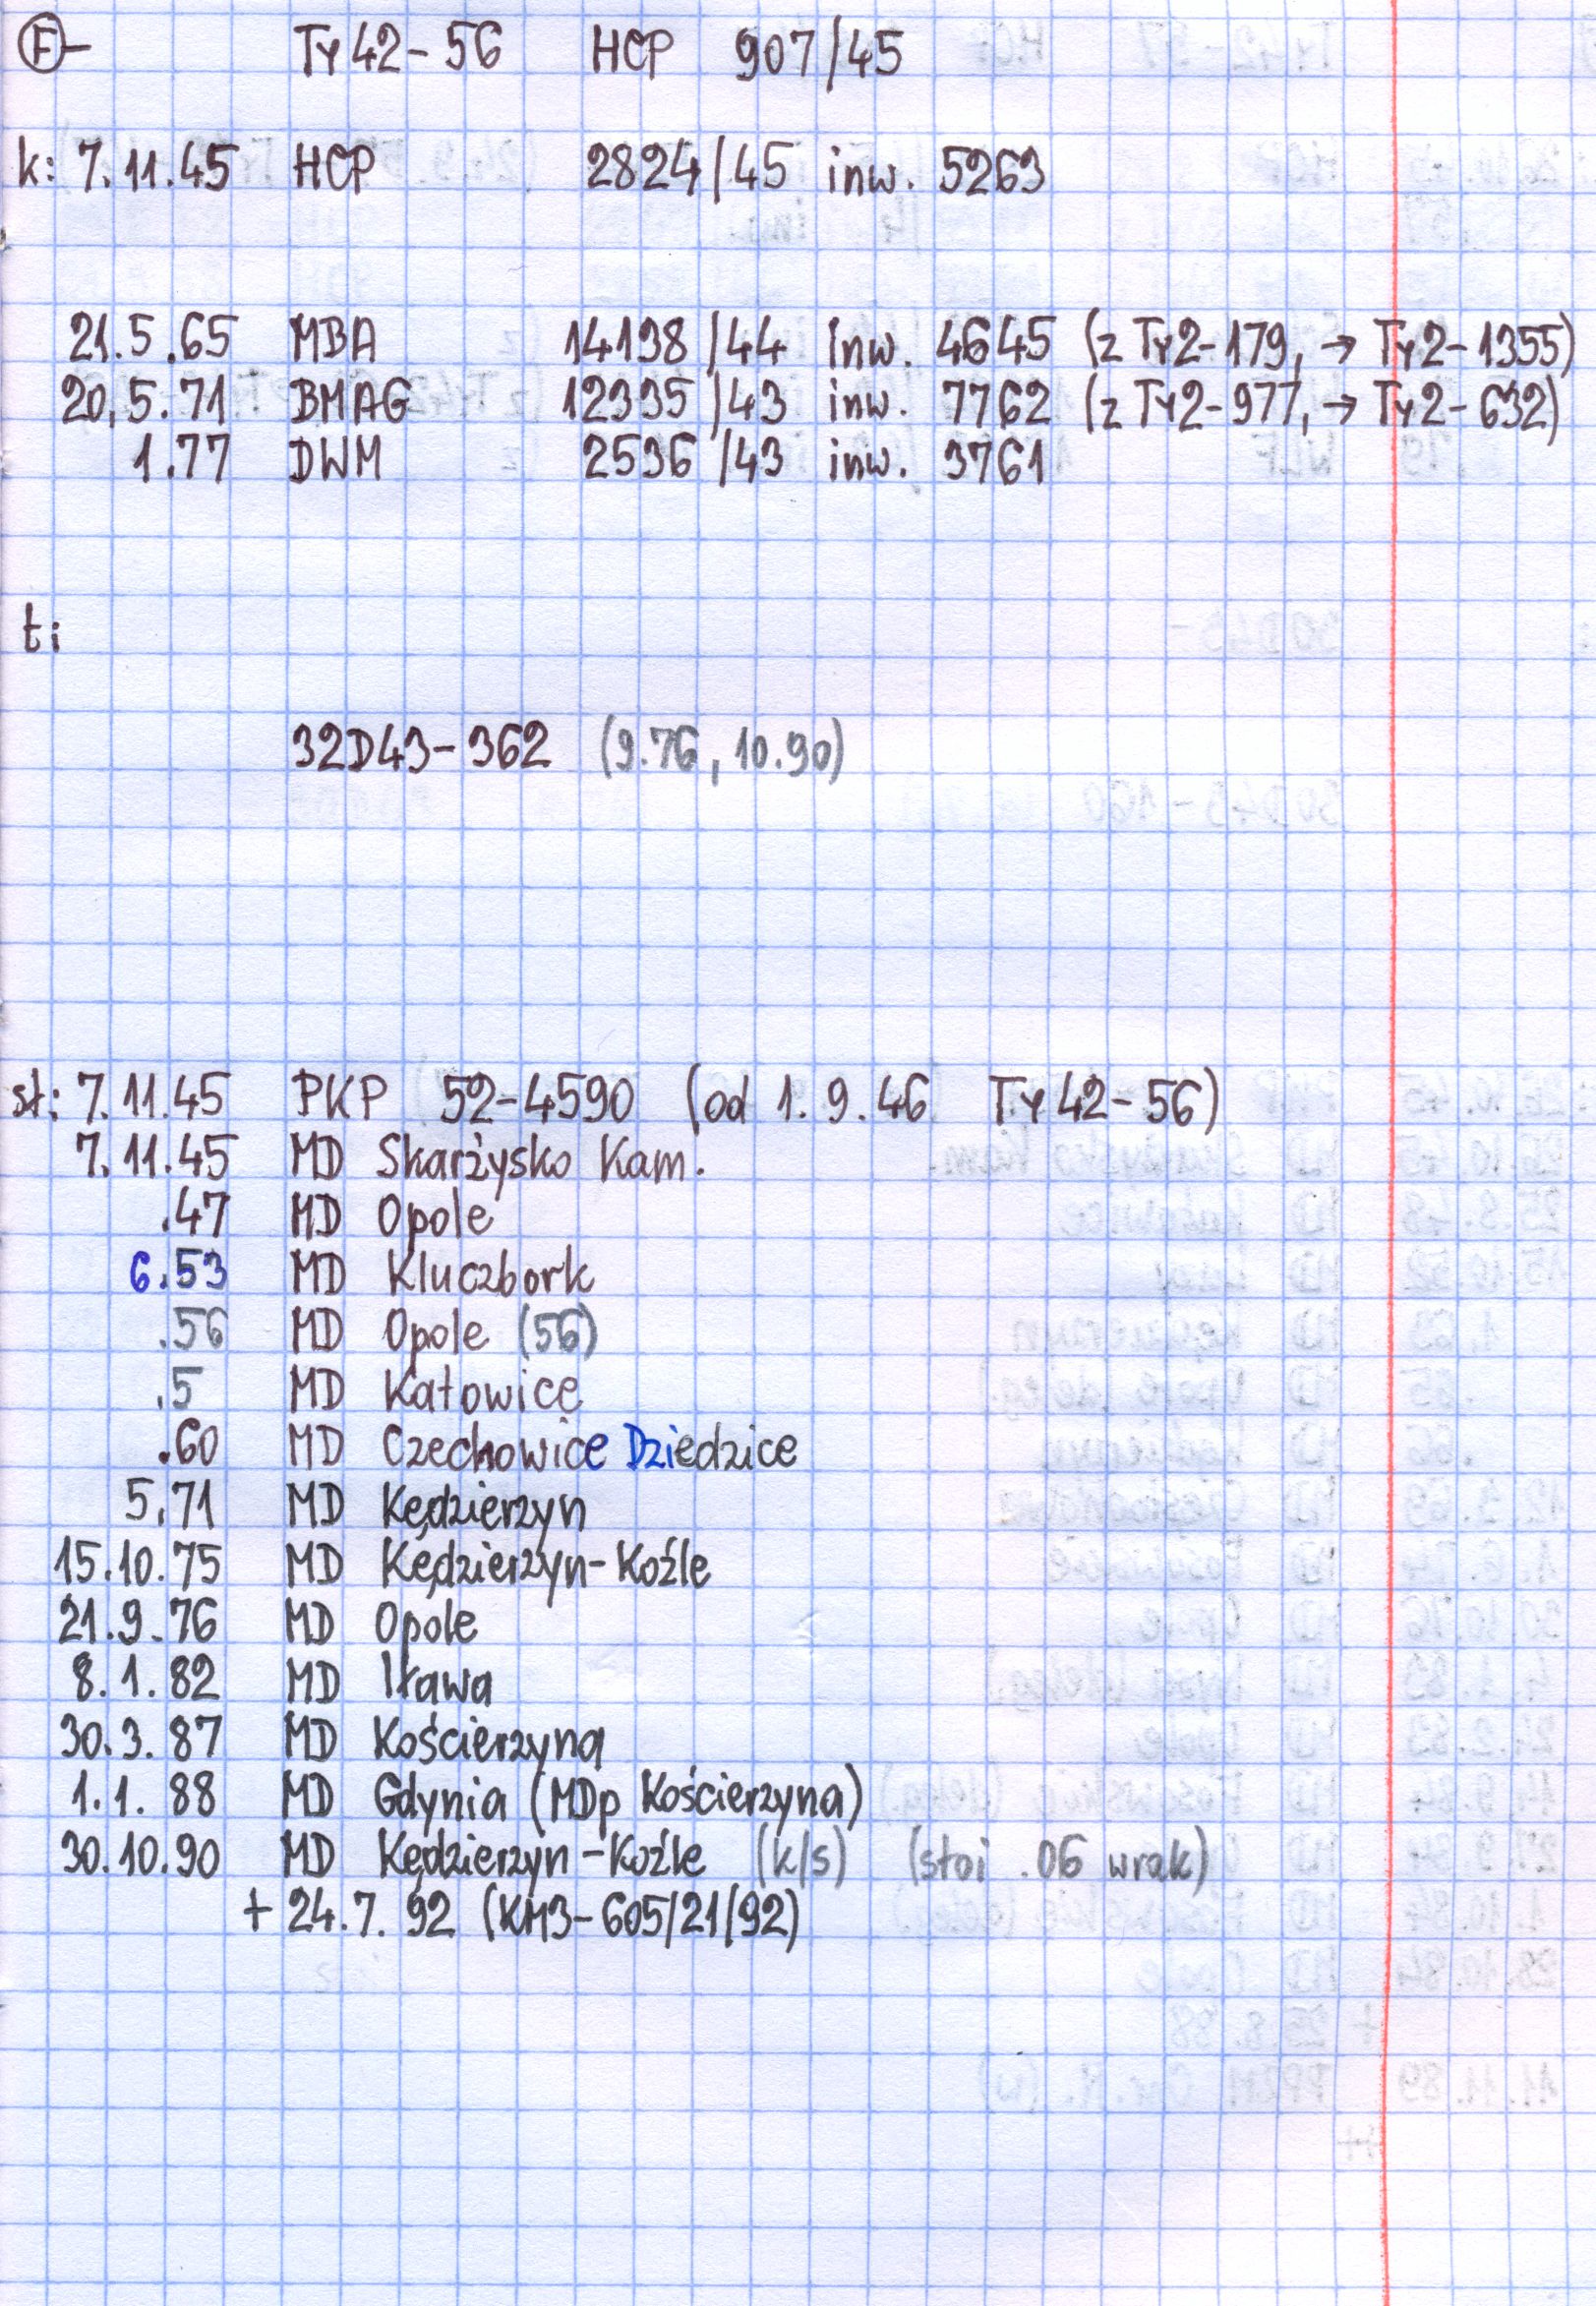 Ⓕ- Ty42-56 HCP 907/45
k: 7.11.45 HCP 2824/45 inw. 5263
21.5.65 MBA 14138/44 inw. 4645 (z Ty2-179, → Ty2-1355)
20.5.71 BMAG 12335/43 inw. 7762 (z Ty2-977, → Ty2-632)
1.77 DWM 2536/43 inw. 3761
t:
32D43-362 (9.76, 10.90)
st: 7.11.45 PKP 52-4590 (od 1.9.46 Ty42-56)
7.11.45 MD Skarżysko Kam.
.47 MD Opole
6.53 MD Kluczbork
.56 MD Opole (56)
.5 MD Katowice
.60 MD Czechowice Dziedzice
5.71 MD Kędzierzyn
15.10.75 MD Kędzierzyn-Koźle
21.9.76 MD Opole
8.1.82 MD Iława
30.3.87 MD Kościerzyna
1.1.88 MD Gdynia (MDp Kościerzyna)
30.10.90 MD Kędzierzyn-Koźle (k/s) (stoi .06 wrak)
+ 24.7.92 (KM3-605/21/92)